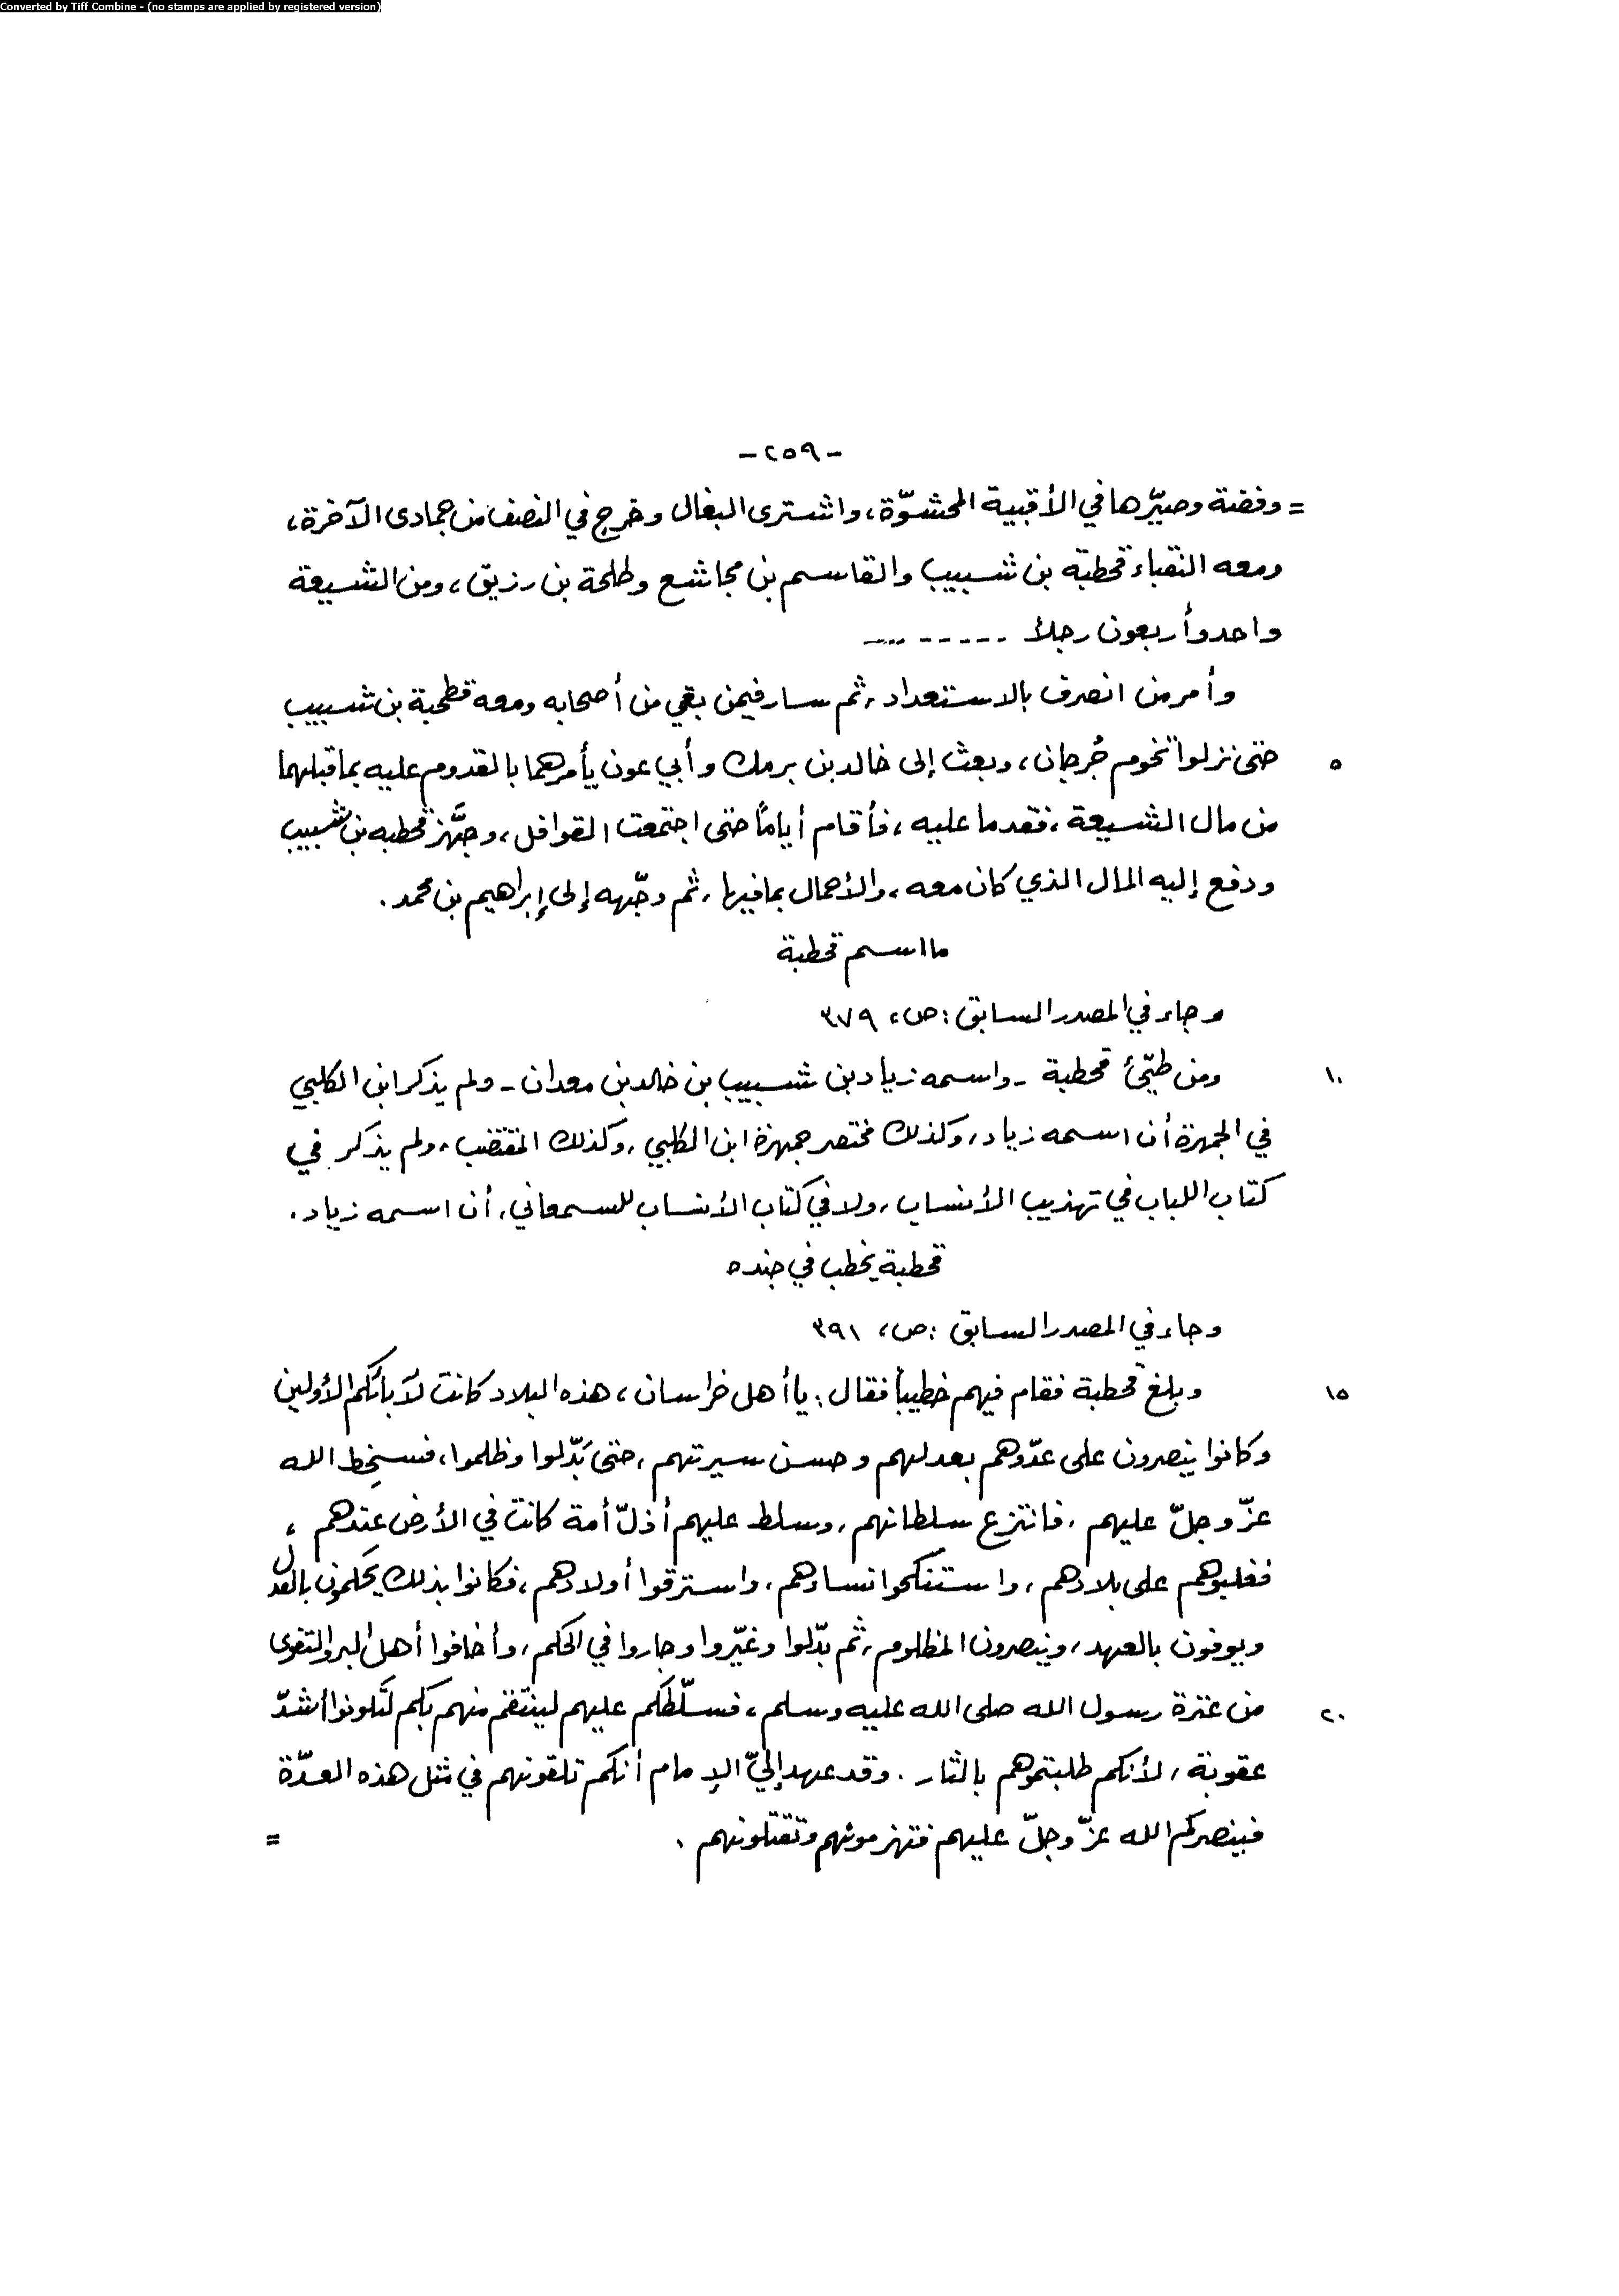 Converted by Tiff Combine - (no stamps are applied by registered version)
- ٢٥٩ -
= وفضة وصيّرها في الأقبية المحشوّة، واشترى البغال وخرج في النصف من جمادى الآخرة،
ومعه النقباء قحطبة بن شبيب والقاسم بن مجاشع وطلحة بن رزيق، ومن الشيعة
واحد وأربعون رجلاً ---------
وأمر من انصرف بالاستعداد، ثم سار فيمن بقي من أصحابه ومعه قطحبة بن شبيب
٥ حتى نزلوا تخوم جُرجان، وبعث إلى خالد بن برمك وأبي عون يأمرهما بالقدوم عليه بما قبلهما
من مال الشيعة، فقدما عليه، فأقام أياماً حتى اجتمعت القوافل، وجهَّز قحطبه بن شبيب
ودفع إليه المال الذي كان معه، والأحمال بما فيها، ثم وجّهه إلى إبراهيم بن محمد.
ما اسم قحطبة
وجاء في المصدر السابق: ص، ٣٧٩
١٠ ومن طيّئ قحطبة - واسمه زياد بن شبيب بن خالد بن معدان - ولم يذكر ابن الكلبي
في الجمهرة أن اسمه زياد، وكذلك مختصر جمهرة ابن الكلبي، وكذلك المقتضب، ولم يذكر في
كتاب اللباب في تهذيب الأنساب، ولا في كتاب الأنساب للسمعاني، أن اسمه زياد.
قحطبة يخطب في جنده
وجاء في المصدر السابق: ص، ٣٩١
١٥ وبلغ قحطبة فقام فيهم خطيباً فقال: يا أهل خراسان، هذه البلاد كانت لآبائكم الأولين
وكانوا ينصرون على عدّوهم بعدلهم وحسن سيرتهم، حتى بَدّلوا وظلموا، فسخِط الله
عزّ وجلّ عليهم، فانتزع سلطانهم، وسلط عليهم أذلّ أمة كانت في الأرض عندهم،
فغلبوهم على بلادهم، واستنكحوا نساءهم، واسترقوا أولادهم، فكانوا بذلك يحكمون بالعدل
ويوفون بالعهد، وينصرون المظلوم، ثم بدّلوا وغيّروا وجاروا في الحكم، وأخافوا أهل البر والتقوى
٢٠ من عترة رسول الله صلى الله عليه وسلم، فسلّطكم عليهم لينتقم منهم بكم لتكونوا أشدّ
عقوبة، لأنكم طلبتموهم بالثار. وقد عهد إليّ الإمام أنكم تلقونهم في مثل هذه العدّة
فينصركم الله عزّ وجلّ عليهم فتهزمونهم وتقتلونهم. =